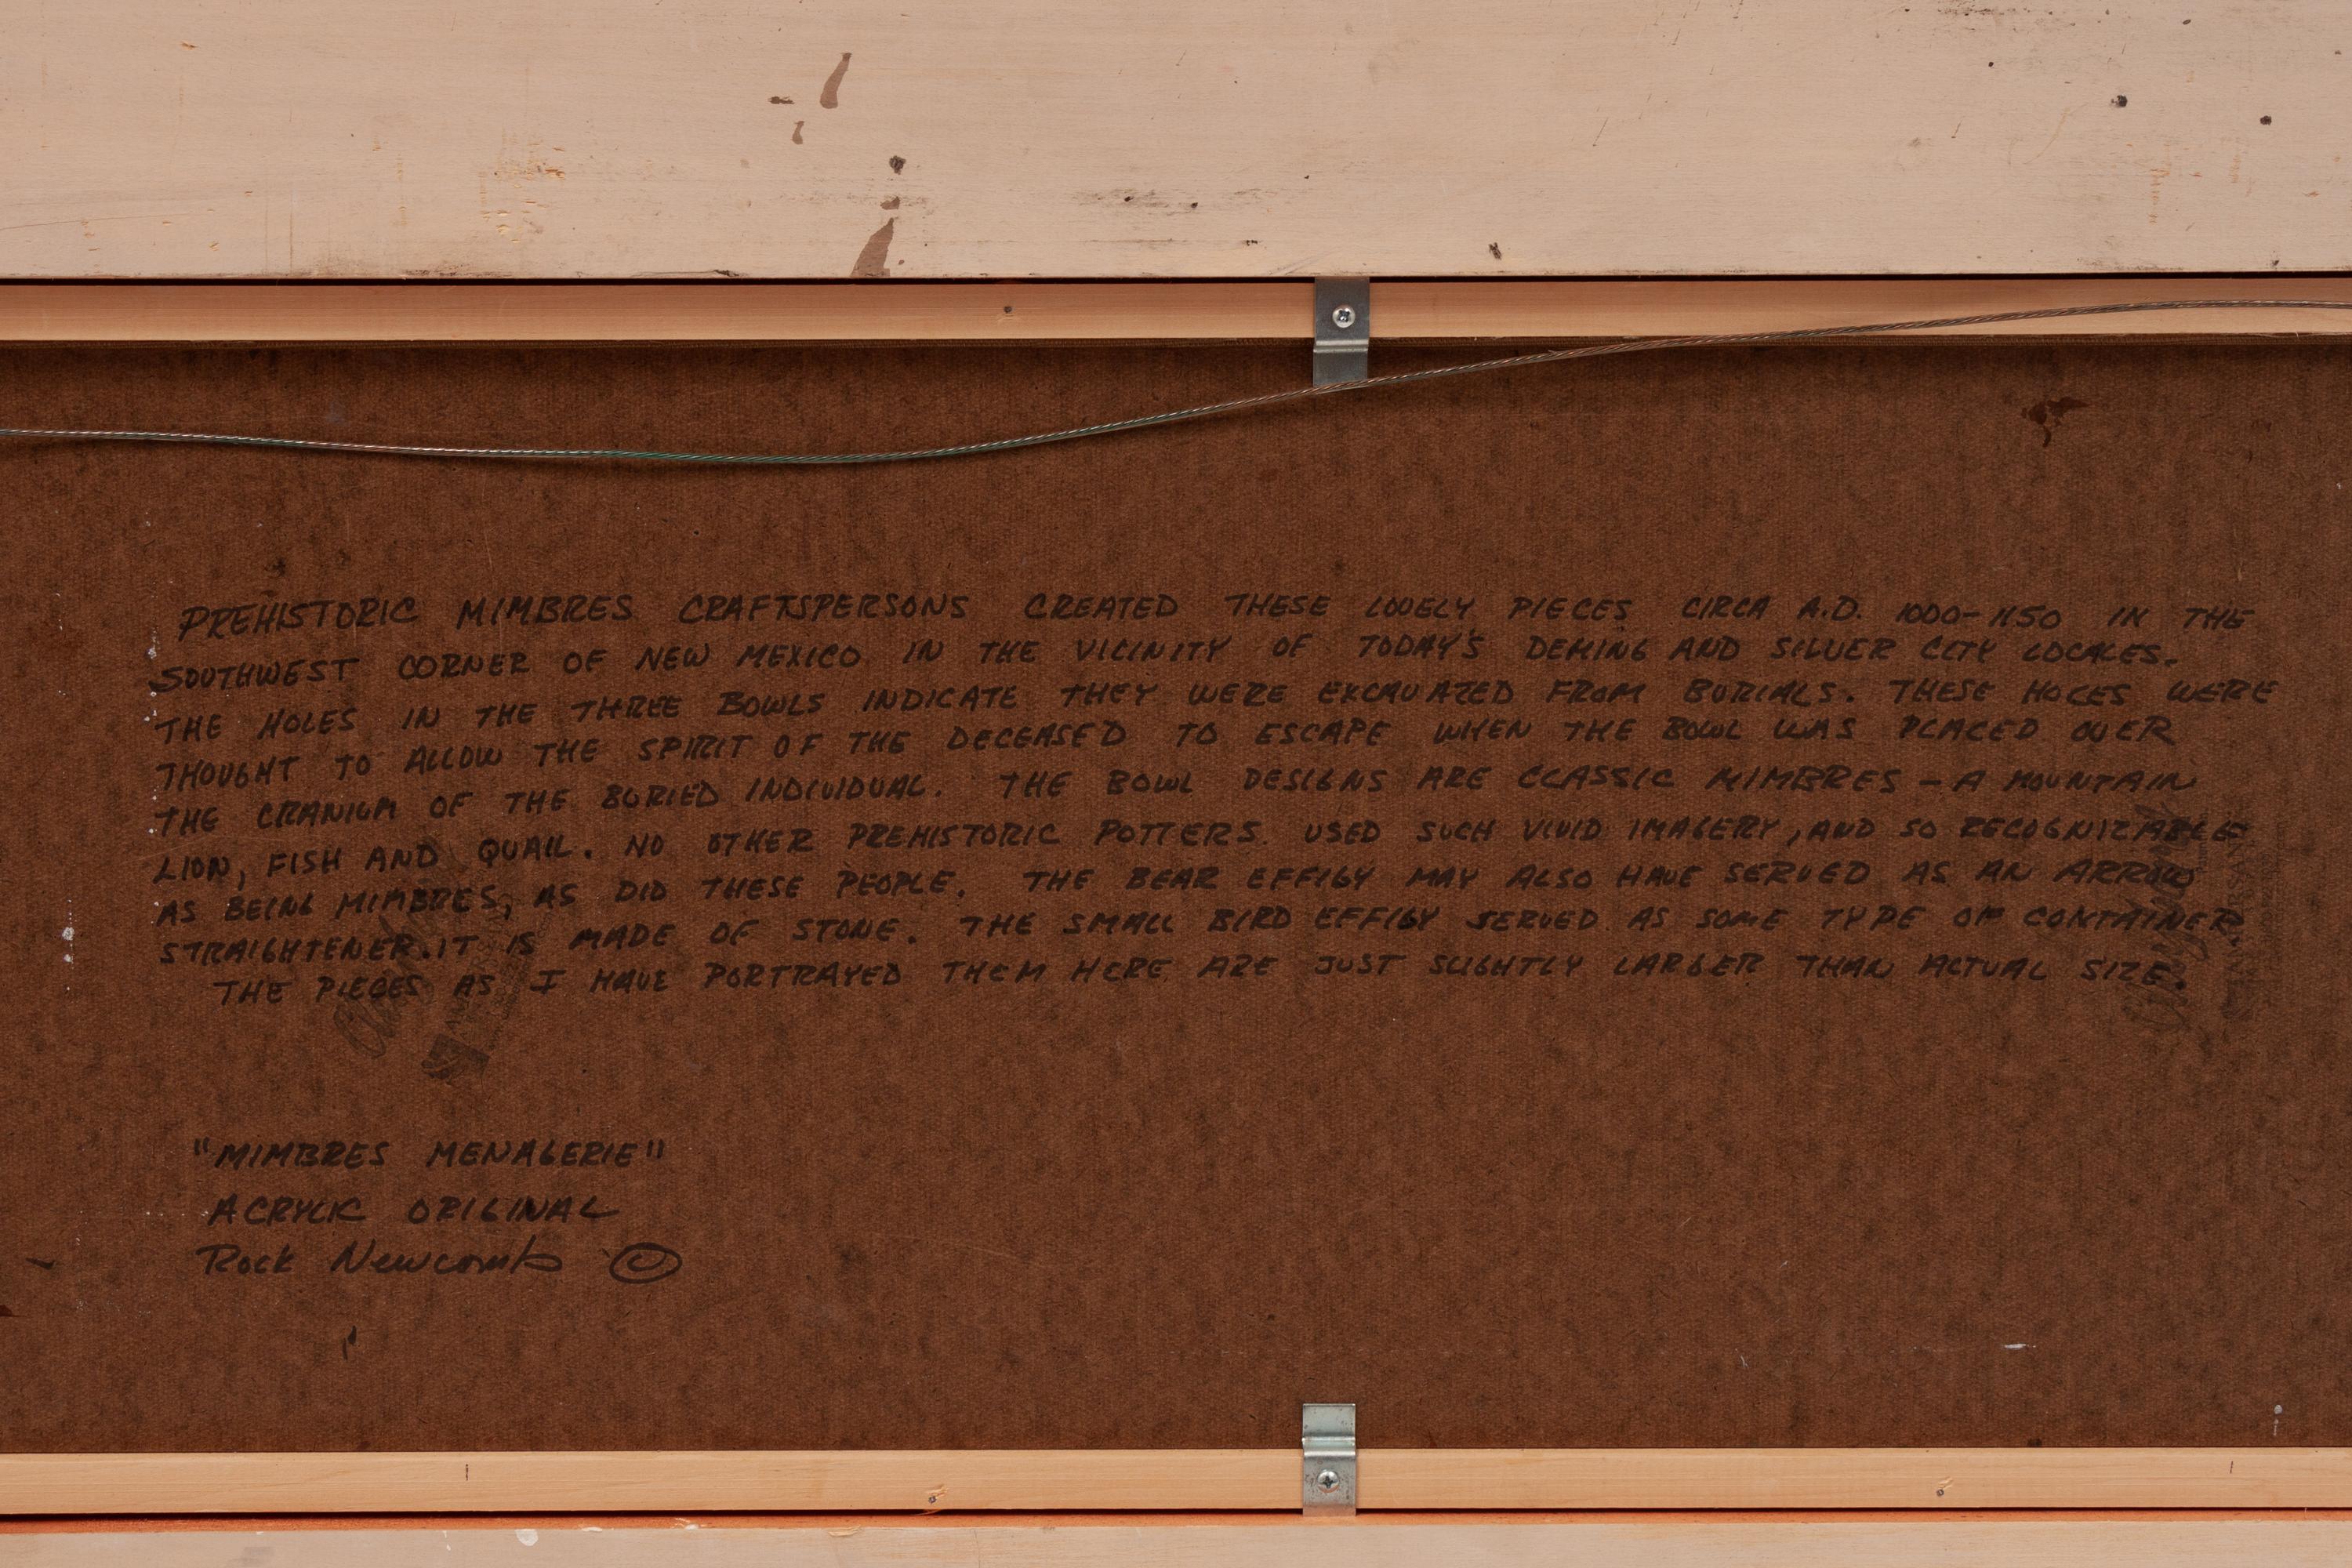 PREHISTORIC MIMBRES CRAFTSPERSONS CREATED THESE LOVELY PIECES CIRCA A.D. 1000-1150 IN THE
SOUTHWEST CORNER OF NEW MEXICO IN THE VICINITY OF TODAY'S DEMING AND SILVER CITY LOCALES.
THE HOLES IN THE THREE BOWLS INDICATE THEY WERE EXCAVATED FROM BURIALS. THESE HOLES WERE
THOUGHT TO ALLOW THE SPIRIT OF THE DECEASED TO ESCAPE WHEN THE BOWL WAS PLACED OVER
THE CRANIUM OF THE BURIED INDIVIDUAL. THE BOWL DESIGNS ARE CLASSIC MIMBRES - A MOUNTAIN
LION, FISH AND QUAIL. NO OTHER PREHISTORIC POTTERS USED SUCH VIVID IMAGERY, AND SO RECOGNIZABLE
AS BEING MIMBRES, AS DID THESE PEOPLE. THE BEAR EFFIGY MAY ALSO HAVE SERVED AS AN ARROW
STRAIGHTENER. IT IS MADE OF STONE. THE SMALL BIRD EFFIGY SERVED AS SOME TYPE OF CONTAINER
THE PIECES AS I HAVE PORTRAYED THEM HERE ARE JUST SLIGHTLY LARGER THAN ACTUAL SIZE.
"MIMBRES MENAGERIE"
ACRYLIC ORIGINAL
Rock Newcomb ©